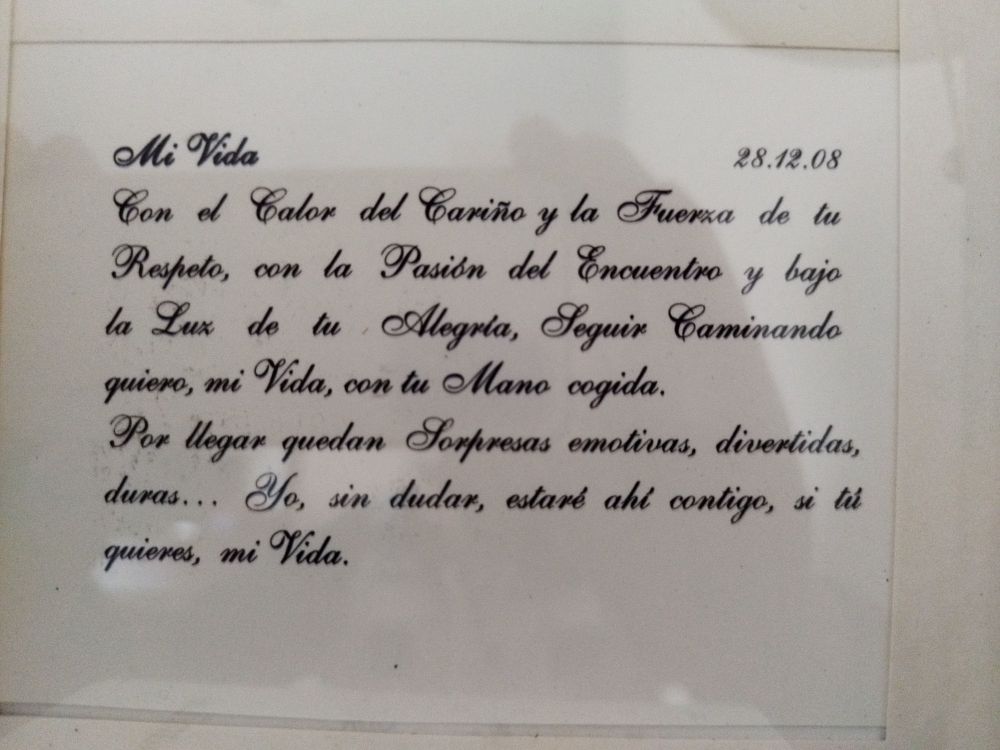 Mi Vida 28.12.08
Con el Calor del Cariño y la Fuerza de tu
Respeto, con la Pasión del Encuentro y bajo
la Luz de tu Alegría, Seguir Caminando
quiero, mi Vida, con tu Mano cogida.
Por llegar quedan Sorpresas emotivas, divertidas,
duras... Yo, sin dudar, estaré ahí contigo, si tú
quieres, mi Vida.